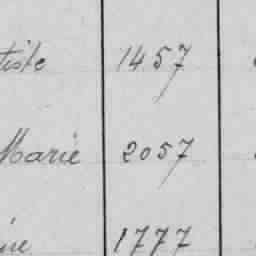 tiste 1457
Marie 2057
ine 1777